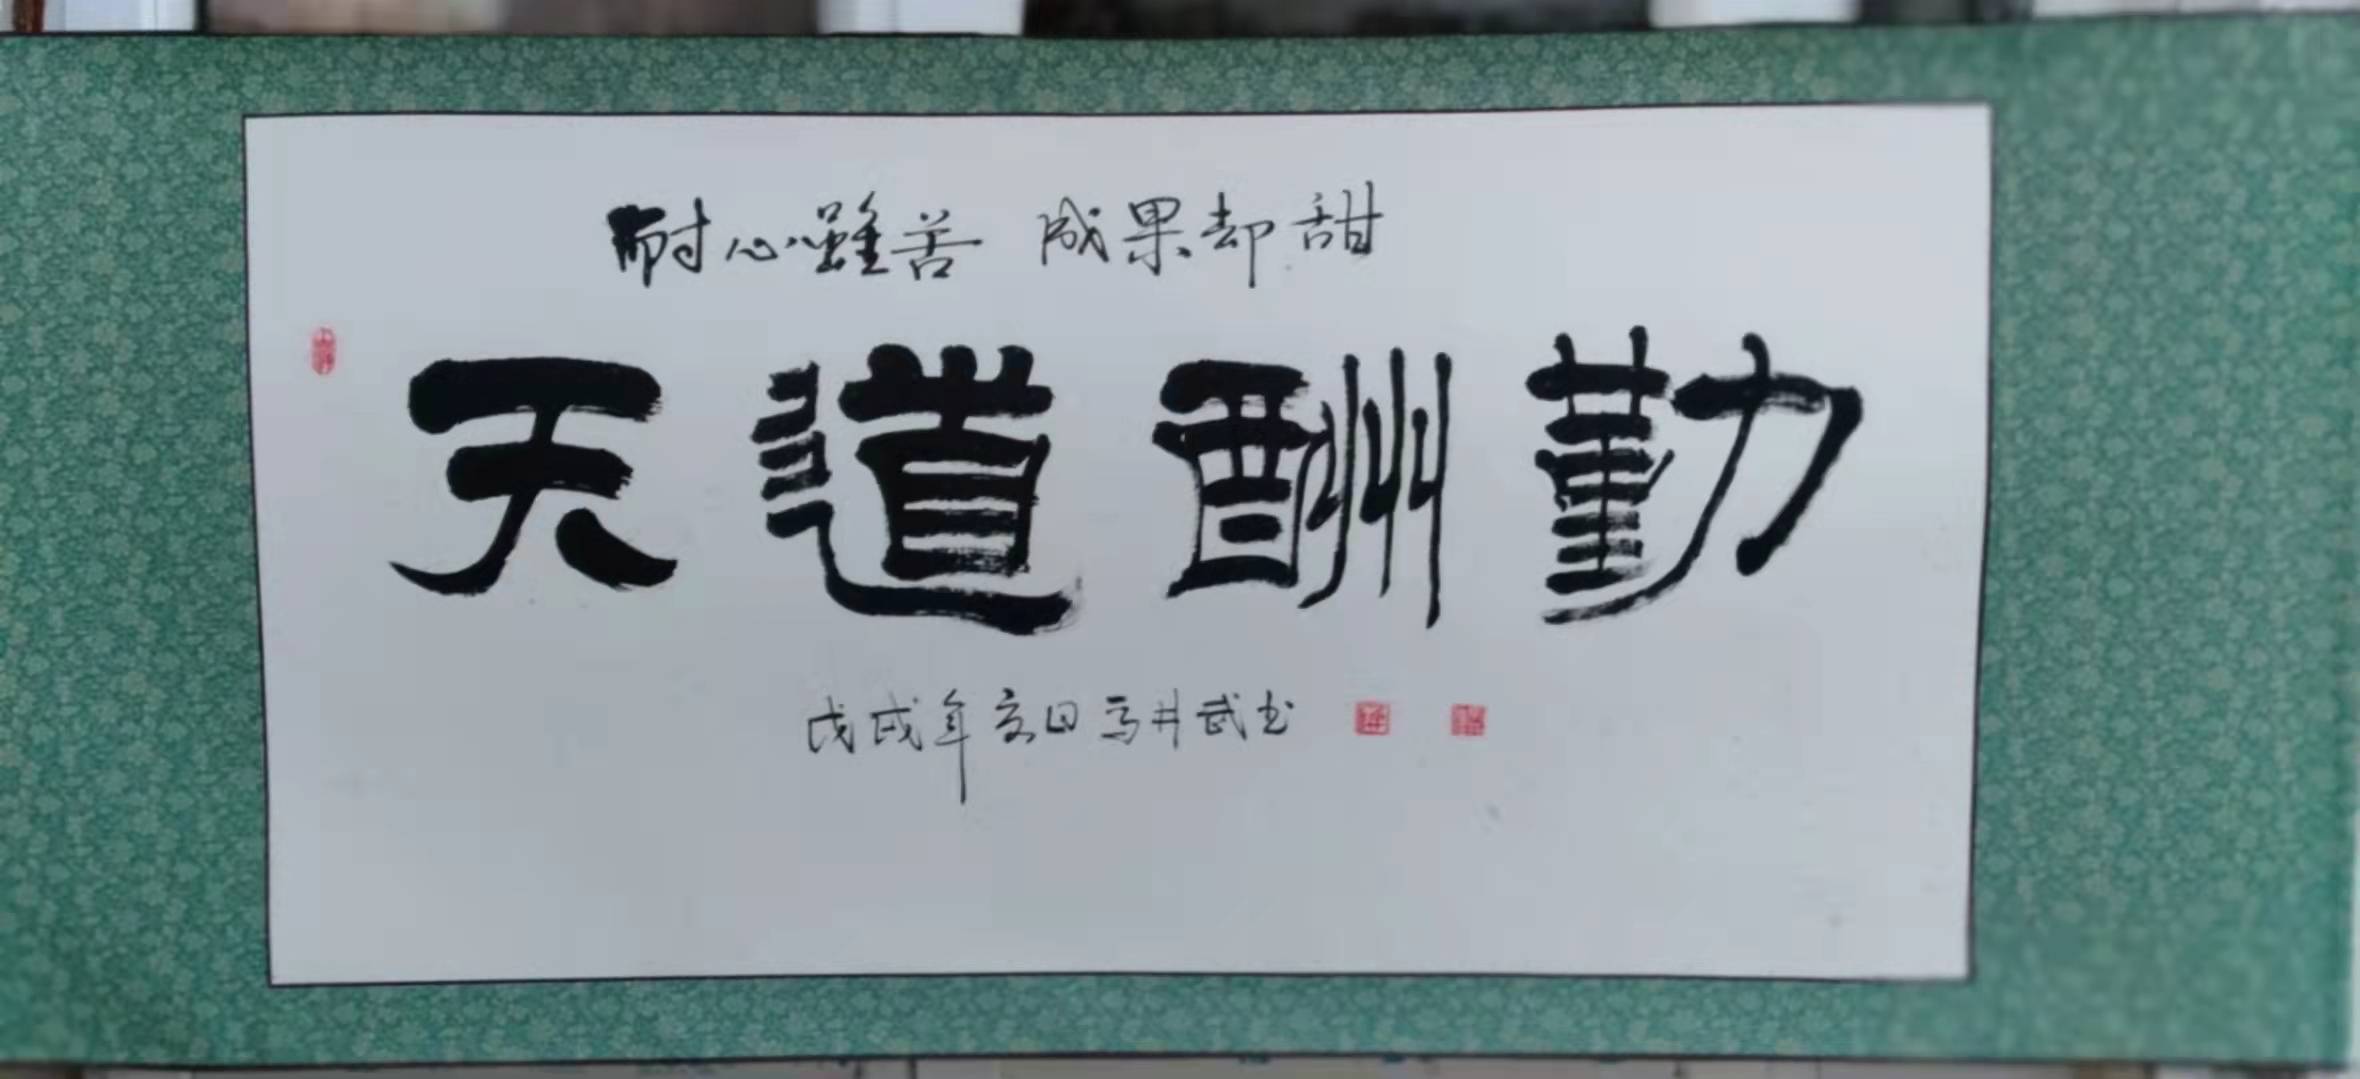 耐心雖苦 成果却甜
天道酬勤
戊戌年夏日马井武书